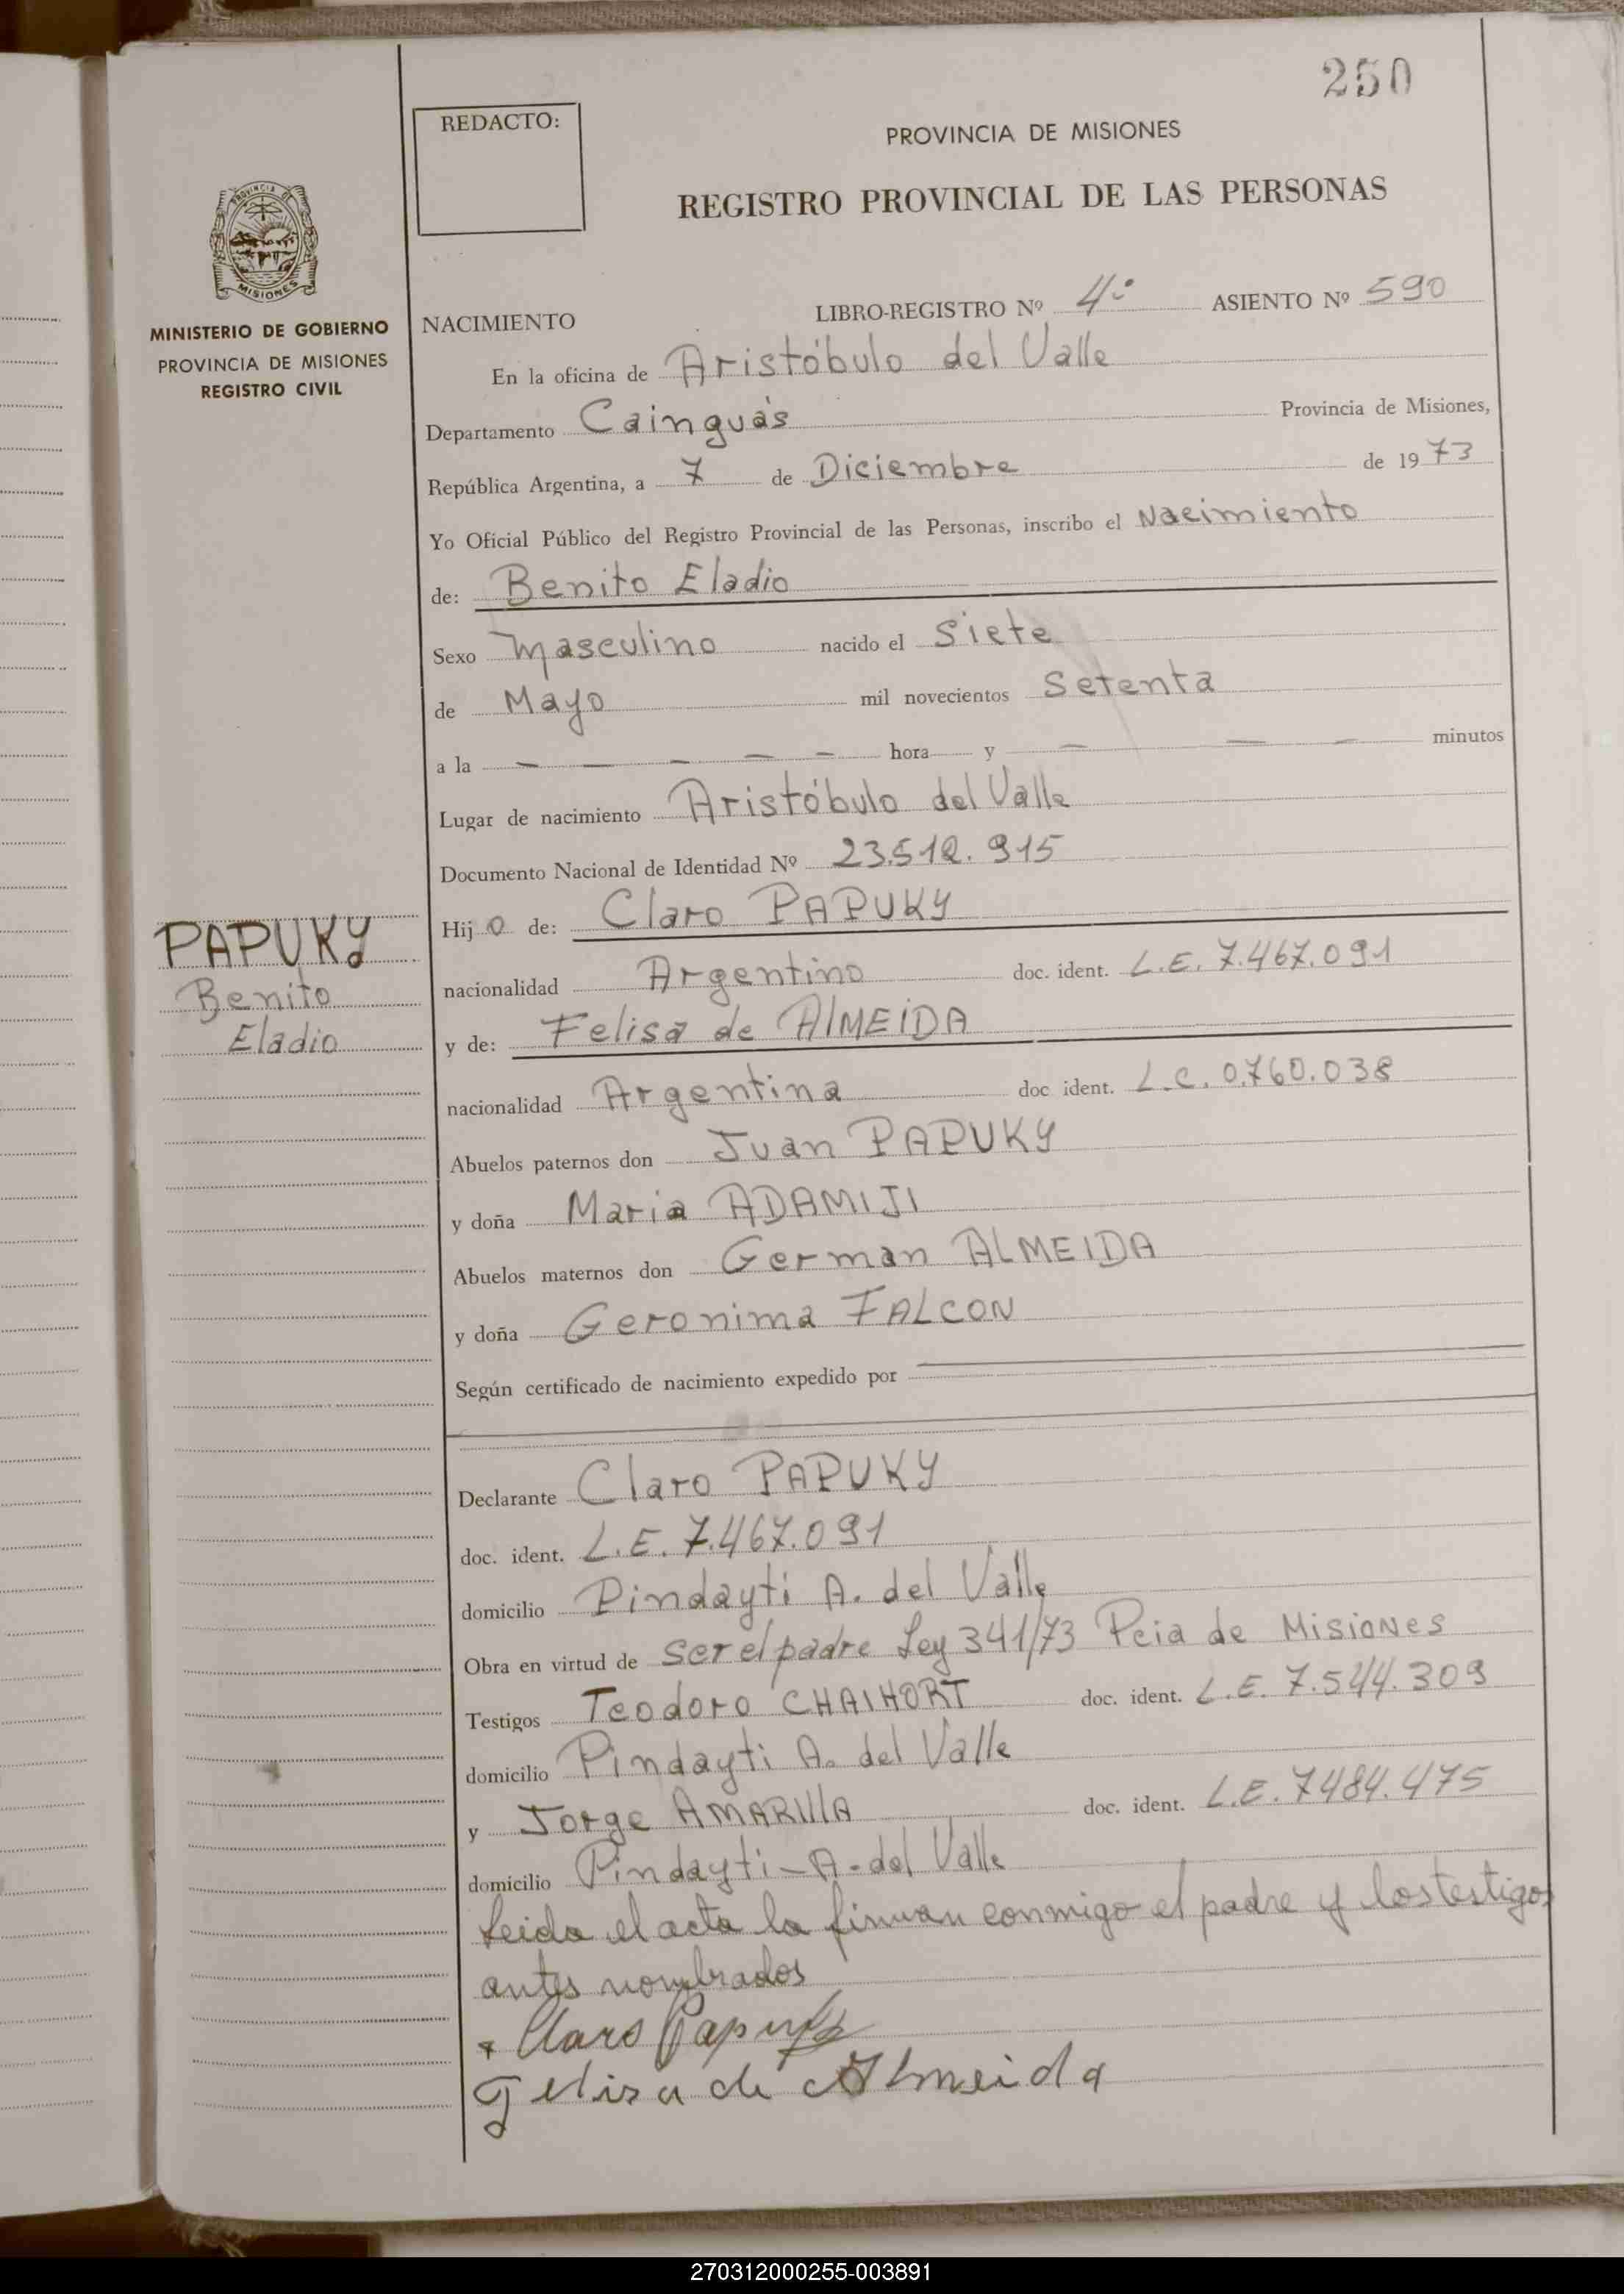 250
REDACTO:
PROVINCIA DE MISIONES
REGISTRO PROVINCIAL DE LAS PERSONAS
PROVINCIA DE
MISIONES
MINISTERIO DE GOBIERNO
PROVINCIA DE MISIONES
REGISTRO CIVIL
NACIMIENTO LIBRO-REGISTRO Nº 4º ASIENTO Nº 590
En la oficina de Aristóbulo del Valle
Departamento Cainguás Provincia de Misiones,
República Argentina, a 7 de Diciembre de 1973
Yo Oficial Público del Registro Provincial de las Personas, inscribo el Nacimiento
de: Benito Eladio
Sexo Masculino nacido el Siete
de Mayo mil novecientos Setenta
a la — — — — — hora y — — — minutos
Lugar de nacimiento Aristóbulo del Valle
Documento Nacional de Identidad Nº 23.512.915
Hijo de: Claro PAPUKY
PAPUKY
Benito
Eladio
nacionalidad Argentino doc. ident. L.E. 7.467.091
y de: Felisa de AlMEIDA
nacionalidad Argentina doc ident. L.C. 0.760.038
Abuelos paternos don Juan PAPUKY
y doña Maria ADAMIJI
Abuelos maternos don German ALMEIDA
y doña Geronima FALCON
Según certificado de nacimiento expedido por
Declarante Claro PAPUKY
doc. ident. L.E. 7.467.091
domicilio Pindayti A. del Valle
Obra en virtud de ser el padre Ley 341/73 Pcia de Misiones
Testigos Teodoro CHAIHORT doc. ident. L.E. 7.544.309
domicilio Pindayti A. del Valle
y Jorge AMARIllA doc. ident. L.E. 7484.475
domicilio Pindayti - A. del Valle
Leida el acta la firman conmigo el padre y los testigos
antes nombrados
Claro Papuky
Felisa de Almeida
270312000255-003891